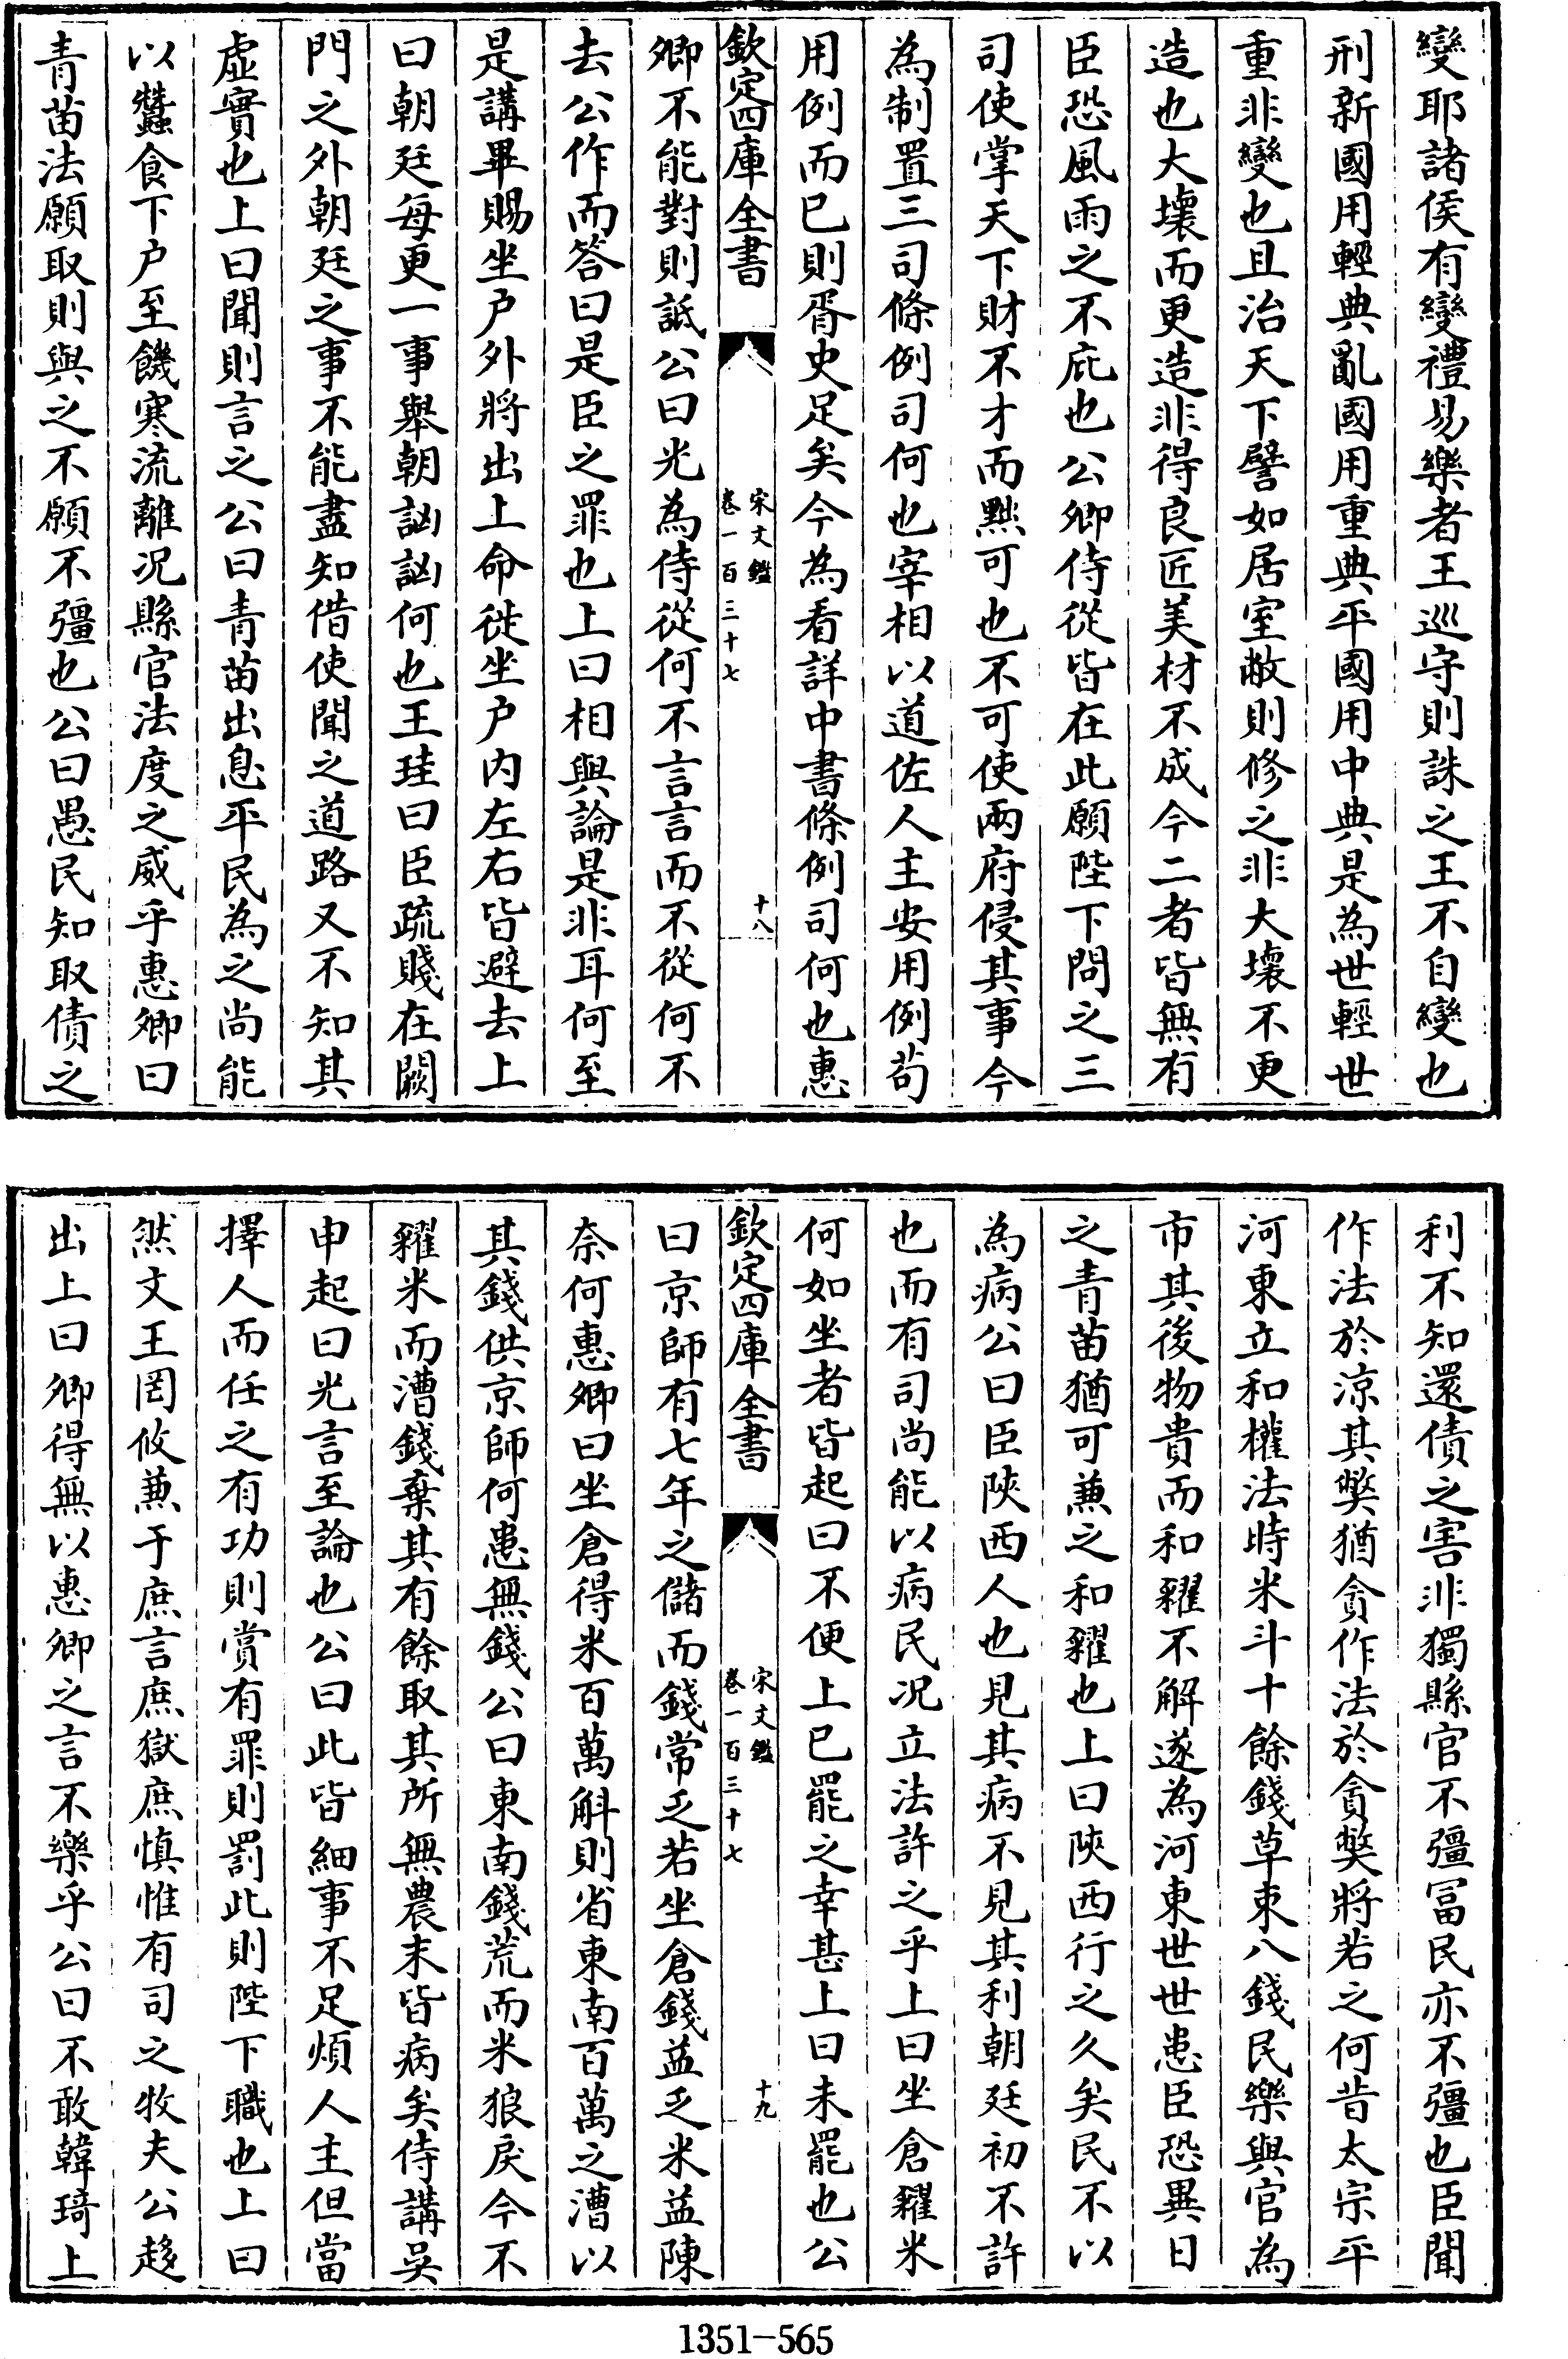 變耶諸侯有變禮易樂者王巡守則誅之王不自變也
刑新國用輕典亂國用重典平國用中典是為世輕世
重非變也且治天下譬如居室敝則修之非大壞不更
造也大壞而更造非得良匠美材不成今二者皆無有
臣恐風雨之不庇也公卿侍從皆在此願陛下問之三
司使掌天下財不才而黜可也不可使兩府侵其事今
為制置三司條例司何也宰相以道佐人主安用例苟
用例而已則胥史足矣今為看詳中書條例司何也惠
欽定四庫全書
宋文鑑
卷一百三十七
十八
卿不能對則詆公曰光為侍從何不言言而不從何不
去公作而答曰是臣之罪也上曰相與論是非耳何至
是講畢賜坐户外將出上命徙坐户内左右皆避去上
曰朝廷每更一事舉朝訩訩何也王珪曰臣疏賤在闕
門之外朝廷之事不能盡知借使聞之道路又不知其
虛實也上曰聞則言之公曰青苗出息平民為之尚能
以蠶食下户至饑寒流離况縣官法度之威乎惠卿曰
青苗法願取則與之不願不彊也公曰愚民知取債之
利不知還債之害非獨縣官不彊富民亦不彊也臣聞
作法於涼其獘猶貪作法於貪獘將若之何昔太宗平
河東立和糴法時米斗十餘錢草束八錢民樂與官為
市其後物貴而和糴不解遂為河東世世患臣恐異日
之青苗猶可兼之和糴也上曰陜西行之久矣民不以
為病公曰臣陜西人也見其病不見其利朝廷初不許
也而有司尚能以病民况立法許之乎上曰坐倉糴米
何如坐者皆起曰不便上已罷之幸甚上曰未罷也公
欽定四庫全書
宋文鑑
卷一百三十七
十九
曰京師有七年之儲而錢常乏若坐倉錢益乏米益陳
奈何惠卿曰坐倉得米百萬斛則省東南百萬之漕以
其錢供京師何患無錢公曰東南錢荒而米狼戾今不
糴米而漕錢棄其有餘取其所無農末皆病矣侍講吳
申起曰光言至論也公曰此皆細事不足煩人主但當
擇人而任之有功則賞有罪則罰此則陛下職也上曰
然文王罔攸兼于庶言庶獄庶慎惟有司之牧夫公趍
出上曰卿得無以惠卿之言不樂乎公曰不敢韓琦上
1351-565